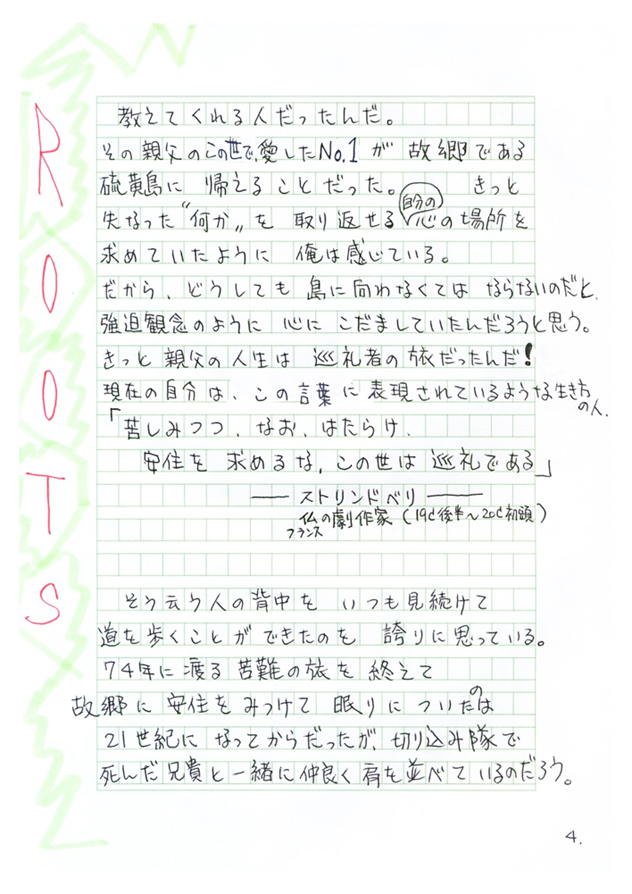 ROOTS
教えてくれる人だったんだ。
その親父のこの世で、愛したNo.1が 故郷である
硫黄島に 帰えることだった。 きっと
失なった〝何か〟を 取り返せる 自分の 心の場所を
求めていたように 俺は感じている。
だから、どうしても 島に向わなくては ならないのだと、
強迫観念のように 心に こだましていたんだろうと思う。
きっと 親父の人生は 巡礼者の旅だったんだ!
現在の自分は、この言葉に表現されているような生き方
の人.
「苦しみつつ、なお、はたらけ、
安住を 求めるな、この世は 巡礼である」
―― ストリンドベリ ――
仏の劇作家 (19C後半〜20C初頭)
フランス
そう云う人の背中を いつも見続けて
道を歩くことが できたのを 誇りに思っている。
74年に渡る 苦難の旅を 終えて
故郷に 安住を みつけて 眠りに ついたのは
21世紀に なってからだったが、切り込み隊で
死んだ兄貴と一緒に仲良く 肩を並べているのだろう。
4.